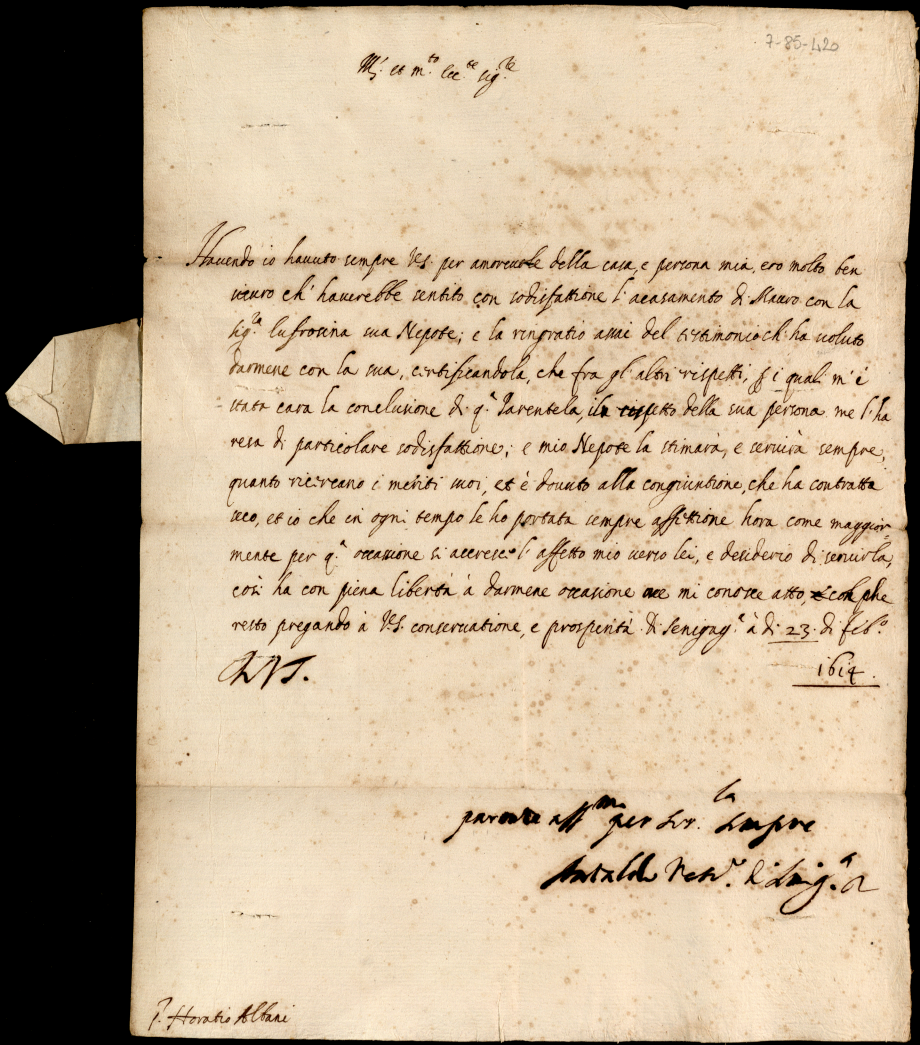 7-85-420
M.^r et m.^to Ecc.^te Sig.^re
Havendo io havuto sempre V.S. per amorevole della casa, e persona mia, ero molto ben
sicuro ch' haverebbe sentito con sodisfattione l'acasamento di Mauro con la
Sig.^ra Eufrosina sua Nepote; e la ringratio assai del testimonio ch' ha voluto
darmene con la sua, certificandola, che fra gl'altri rispetti, p i quali m'è
stata cara la conclusione di q.^a Parentela, il rispetto della sua persona me l'ha
resa di particolare sodisfattione; e mio Nepote la stimarà, e servirà sempre,
quanto ricercano i meriti suoi, et è dovuto alla congiuntione, che ha contratta
seco, et io che in ogni tempo le ho portata sempre affittione hora come maggior=
mente per q.^a occasione si accresce l'affetto mio verso lei, e desiderio di servirla,
così ha con piena libertà à darmene occasione ove mi conosce atto, con che
resto pregando à V.S. conservatione, e prosperità. Di Senigag.^a à di 23 di Feb.^o
1614.
parente aff.^mo per ser.^la sempre
Antaldo Vesc.^o di Sinig.^a
S.^r Horatio Albani